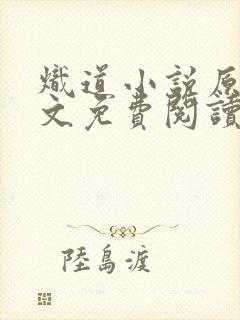 熾道小說原
文免費閱讀
陸島渡